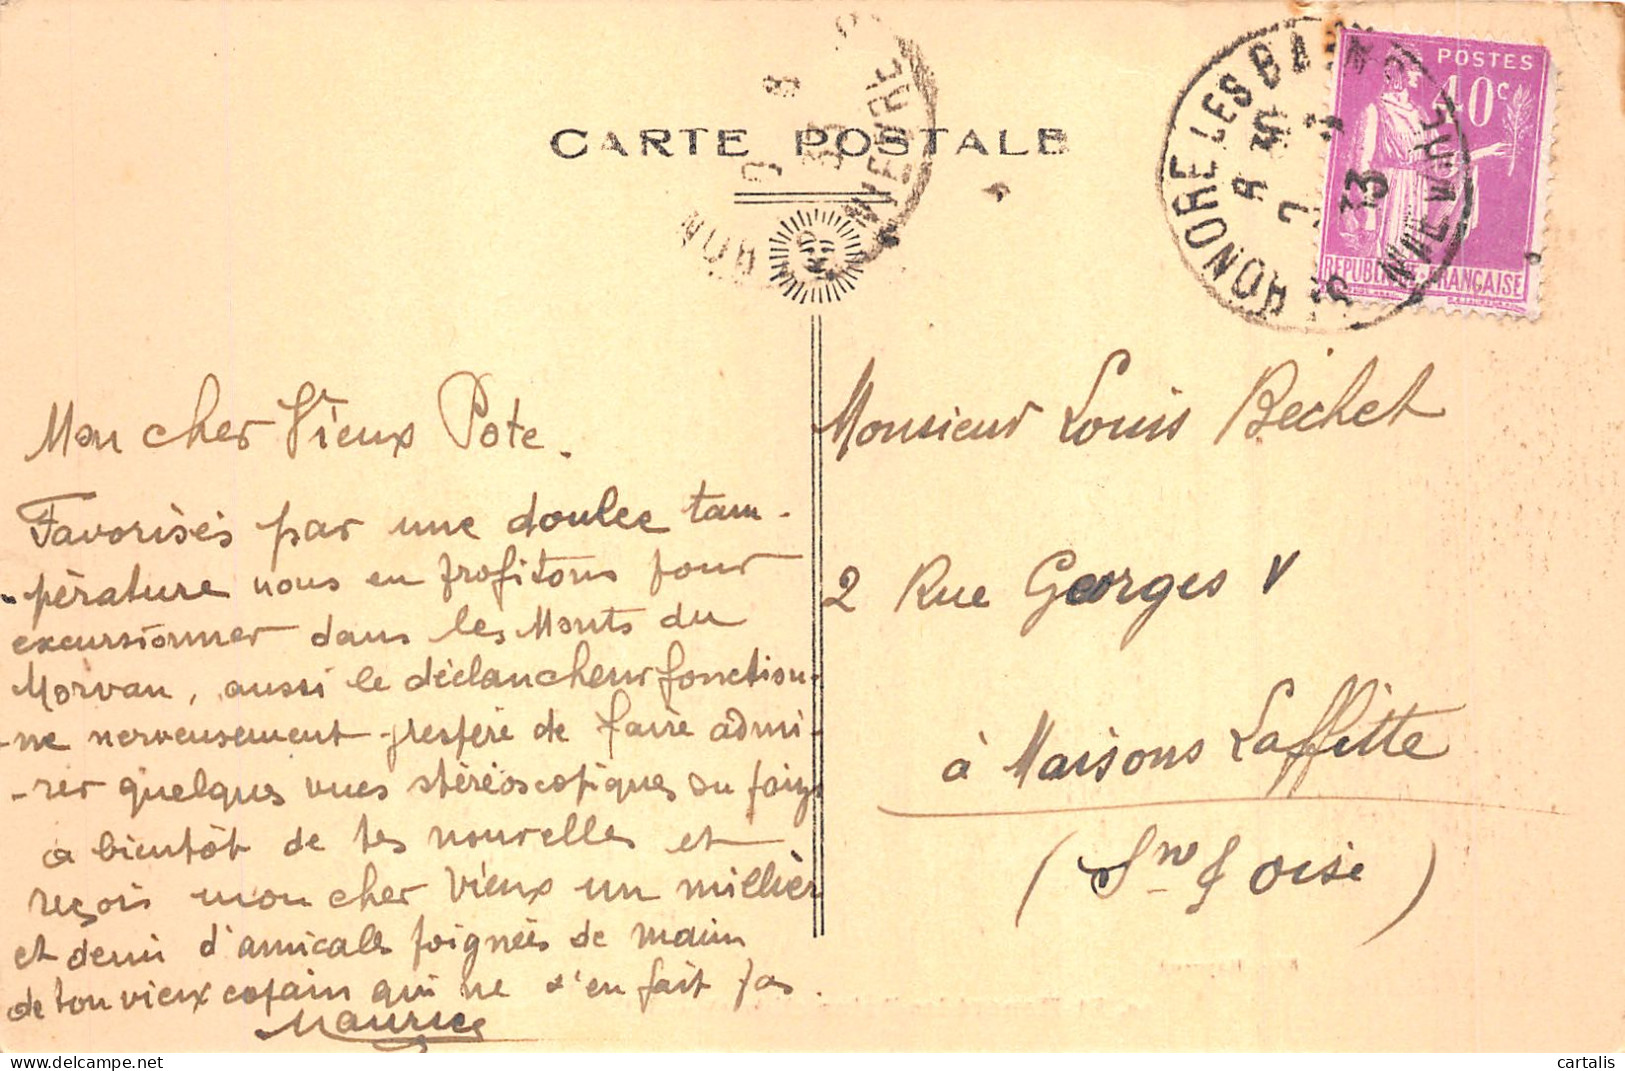 CARTE POSTALE
POSTES
40c
REPUBLIQUE FRANÇAISE
HONORE LES BAINS
NIEVRE
Mon cher Vieux Pote.
Favorisés par une doulce tam-
-pérature nous en profitons pour
excursionner dans les Monts du
Morvan, aussi le déclancheur fonction-
-ne nerveusement j'espère de faire admi-
-rer quelques vues stéréoscopiques
a bientôt de tes nouvelles et
reçois mon cher Vieux un millier
et demi d'amicales poignées de main
de ton vieux copain qui ne s'en fait pas.
Maurice
Monsieur Louis Béchet
2 Rue Georges V
à Maisons Laffitte
(Sne & Oise)
cartalis